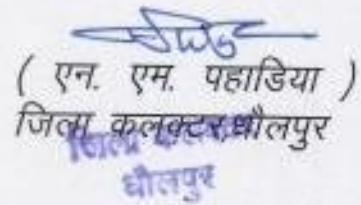 ( एन. एम. पहाडिया )
जिला कलक्टर,धौलपुर
जिला कलक्टर
धौलपुर